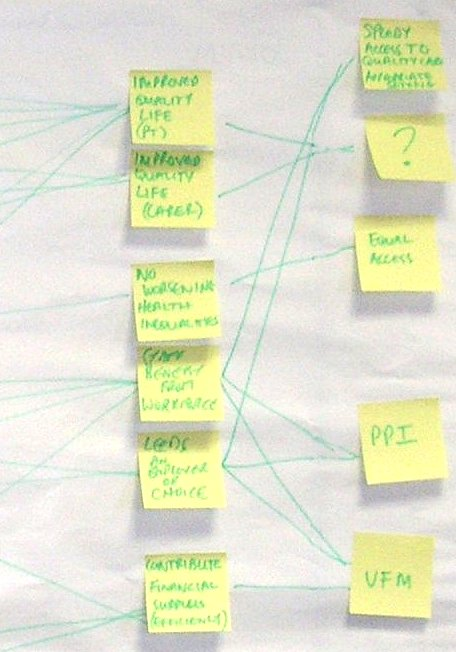 IMPROVED
QUALITY
LIFE
(PT)
IMPROVED
QUALITY
LIFE
(CARER)
NO
WORSENING
HEALTH
INEQUALITIES
BENEFIT
FROM
WORKFORCE
LEEDS
AN
EMPLOYER
OF
CHOICE
CONTRIBUTE
FINANCIAL
SURPLUS
(EFFICIENCY)
SPEEDY
ACCESS TO
QUALITY CARE
APPROPRIATE
?
EQUAL
ACCESS
PPI
VFM